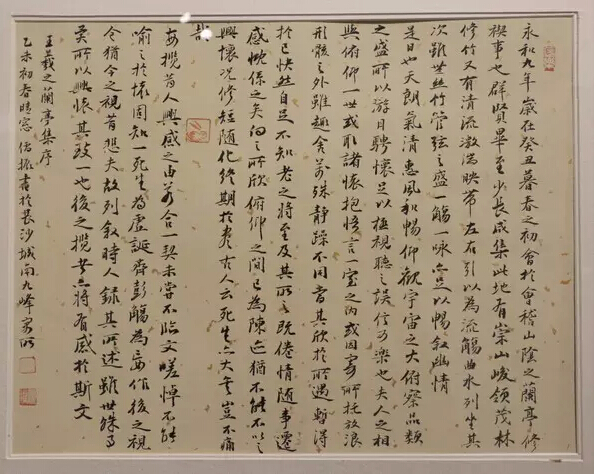 永和九年歲在癸丑暮春之初會於會稽山陰之蘭亭修
禊事也群賢畢至少長咸集此地有崇山峻領茂林
修竹又有清流激湍映帶左右引以為流觴曲水列坐其
次雖無絲竹管弦之盛一觴一咏亦足以暢敘幽情
是日也天朗氣清惠風和暢仰觀宇宙之大俯察品類
之盛所以游目騁懷足以極視聽之娛信可樂也夫人之相
與俯仰一世或取諸懷抱悟言一室之內或因寄所托放浪
形骸之外雖趣舍萬殊靜躁不同當其欣於所遇暫得
於己快然自足不知老之將至及其所之既倦情隨事遷
感慨係之矣向之所欣俯仰之間已為陳迹猶不能不以之
興懷況修短隨化終期於盡古人云死生亦大矣豈不痛
哉
每攬昔人興感之由若合一契未嘗不臨文嗟悼不能
喻之於懷固知一死生為虛誕齊彭觴為妄作後之視
今猶今之視昔悲夫故列敘時人錄其所述雖世殊事
異所以興懷其致一也後之攬者亦將有感於斯文
王羲之蘭亭集序
乙未初春晴窓振書於長沙城南九峰寓所